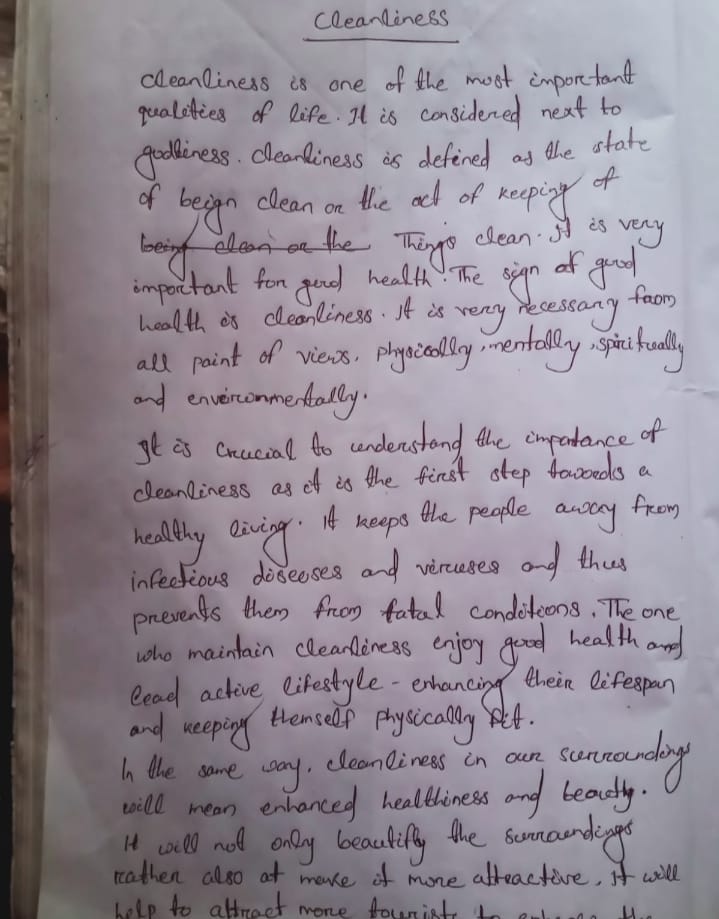 Cleanliness
cleanliness is one of the most important
qualities of life. It is considered next to
godliness. cleanliness is defined as the state
of beign clean or the act of keeping of
being clean or the Things clean. It is very
important for good health. The sign of good
health is cleanliness. it is very necessary from
all point of views, physically, mentally, spiritually
and environmentally.
It is crucial to understand the importance of
cleanliness as it is the first step towards a
healthy living. it keeps the people away from
infectious diseases and viruses and thus
prevents them from fatal conditions. The one
who maintain cleanliness enjoy good health and
lead active lifestyle - enhancing their lifespan
and keeping themself physically fit.
In the same way, cleanliness in our surroundings
will mean enhanced healthiness and beauty.
It will not only beautify the surroundings
rather also at make it more attractive. It will
help to attract more tourists to